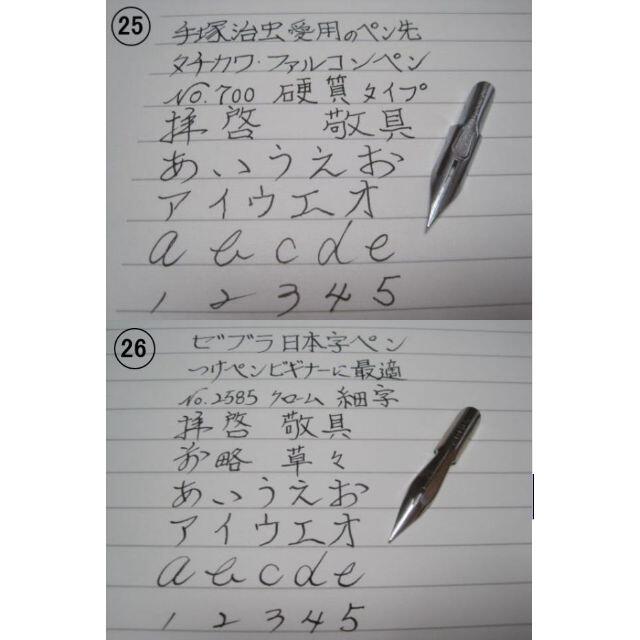 25
手塚治虫愛用のペン先
タチカワ・ファルコンペン
No.700 硬質タイプ
拝啓 敬具
あいうえお
アイウエオ
a b c d e
1 2 3 4 5
26
ゼブラ日本字ペン
つけペンビギナーに最適
No.2585 クローム 細字
拝啓 敬具
前略 草々
あいうえお
アイウエオ
a b c d e
1 2 3 4 5